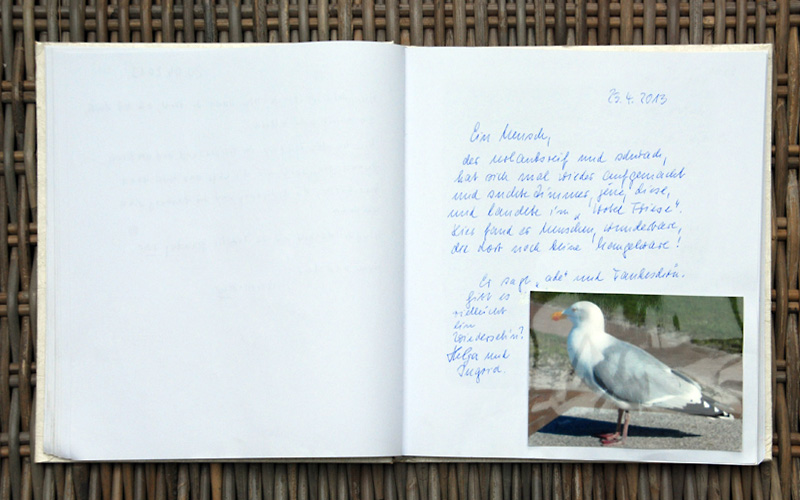 23.4.2013
Ein Mensch,
der urlaubsreif und schwach,
hat sich mal wieder aufgemacht
und suchte Zimmer, jene, diese,
und landete im „Hotel Friese“.
Hier fand er Menschen, wunderbare,
die dort noch keine Mangelware!
Er sagt „ade“ und Dankeschön.
Gibt es
vielleicht
ein
Wiederseh'n?
Helga und